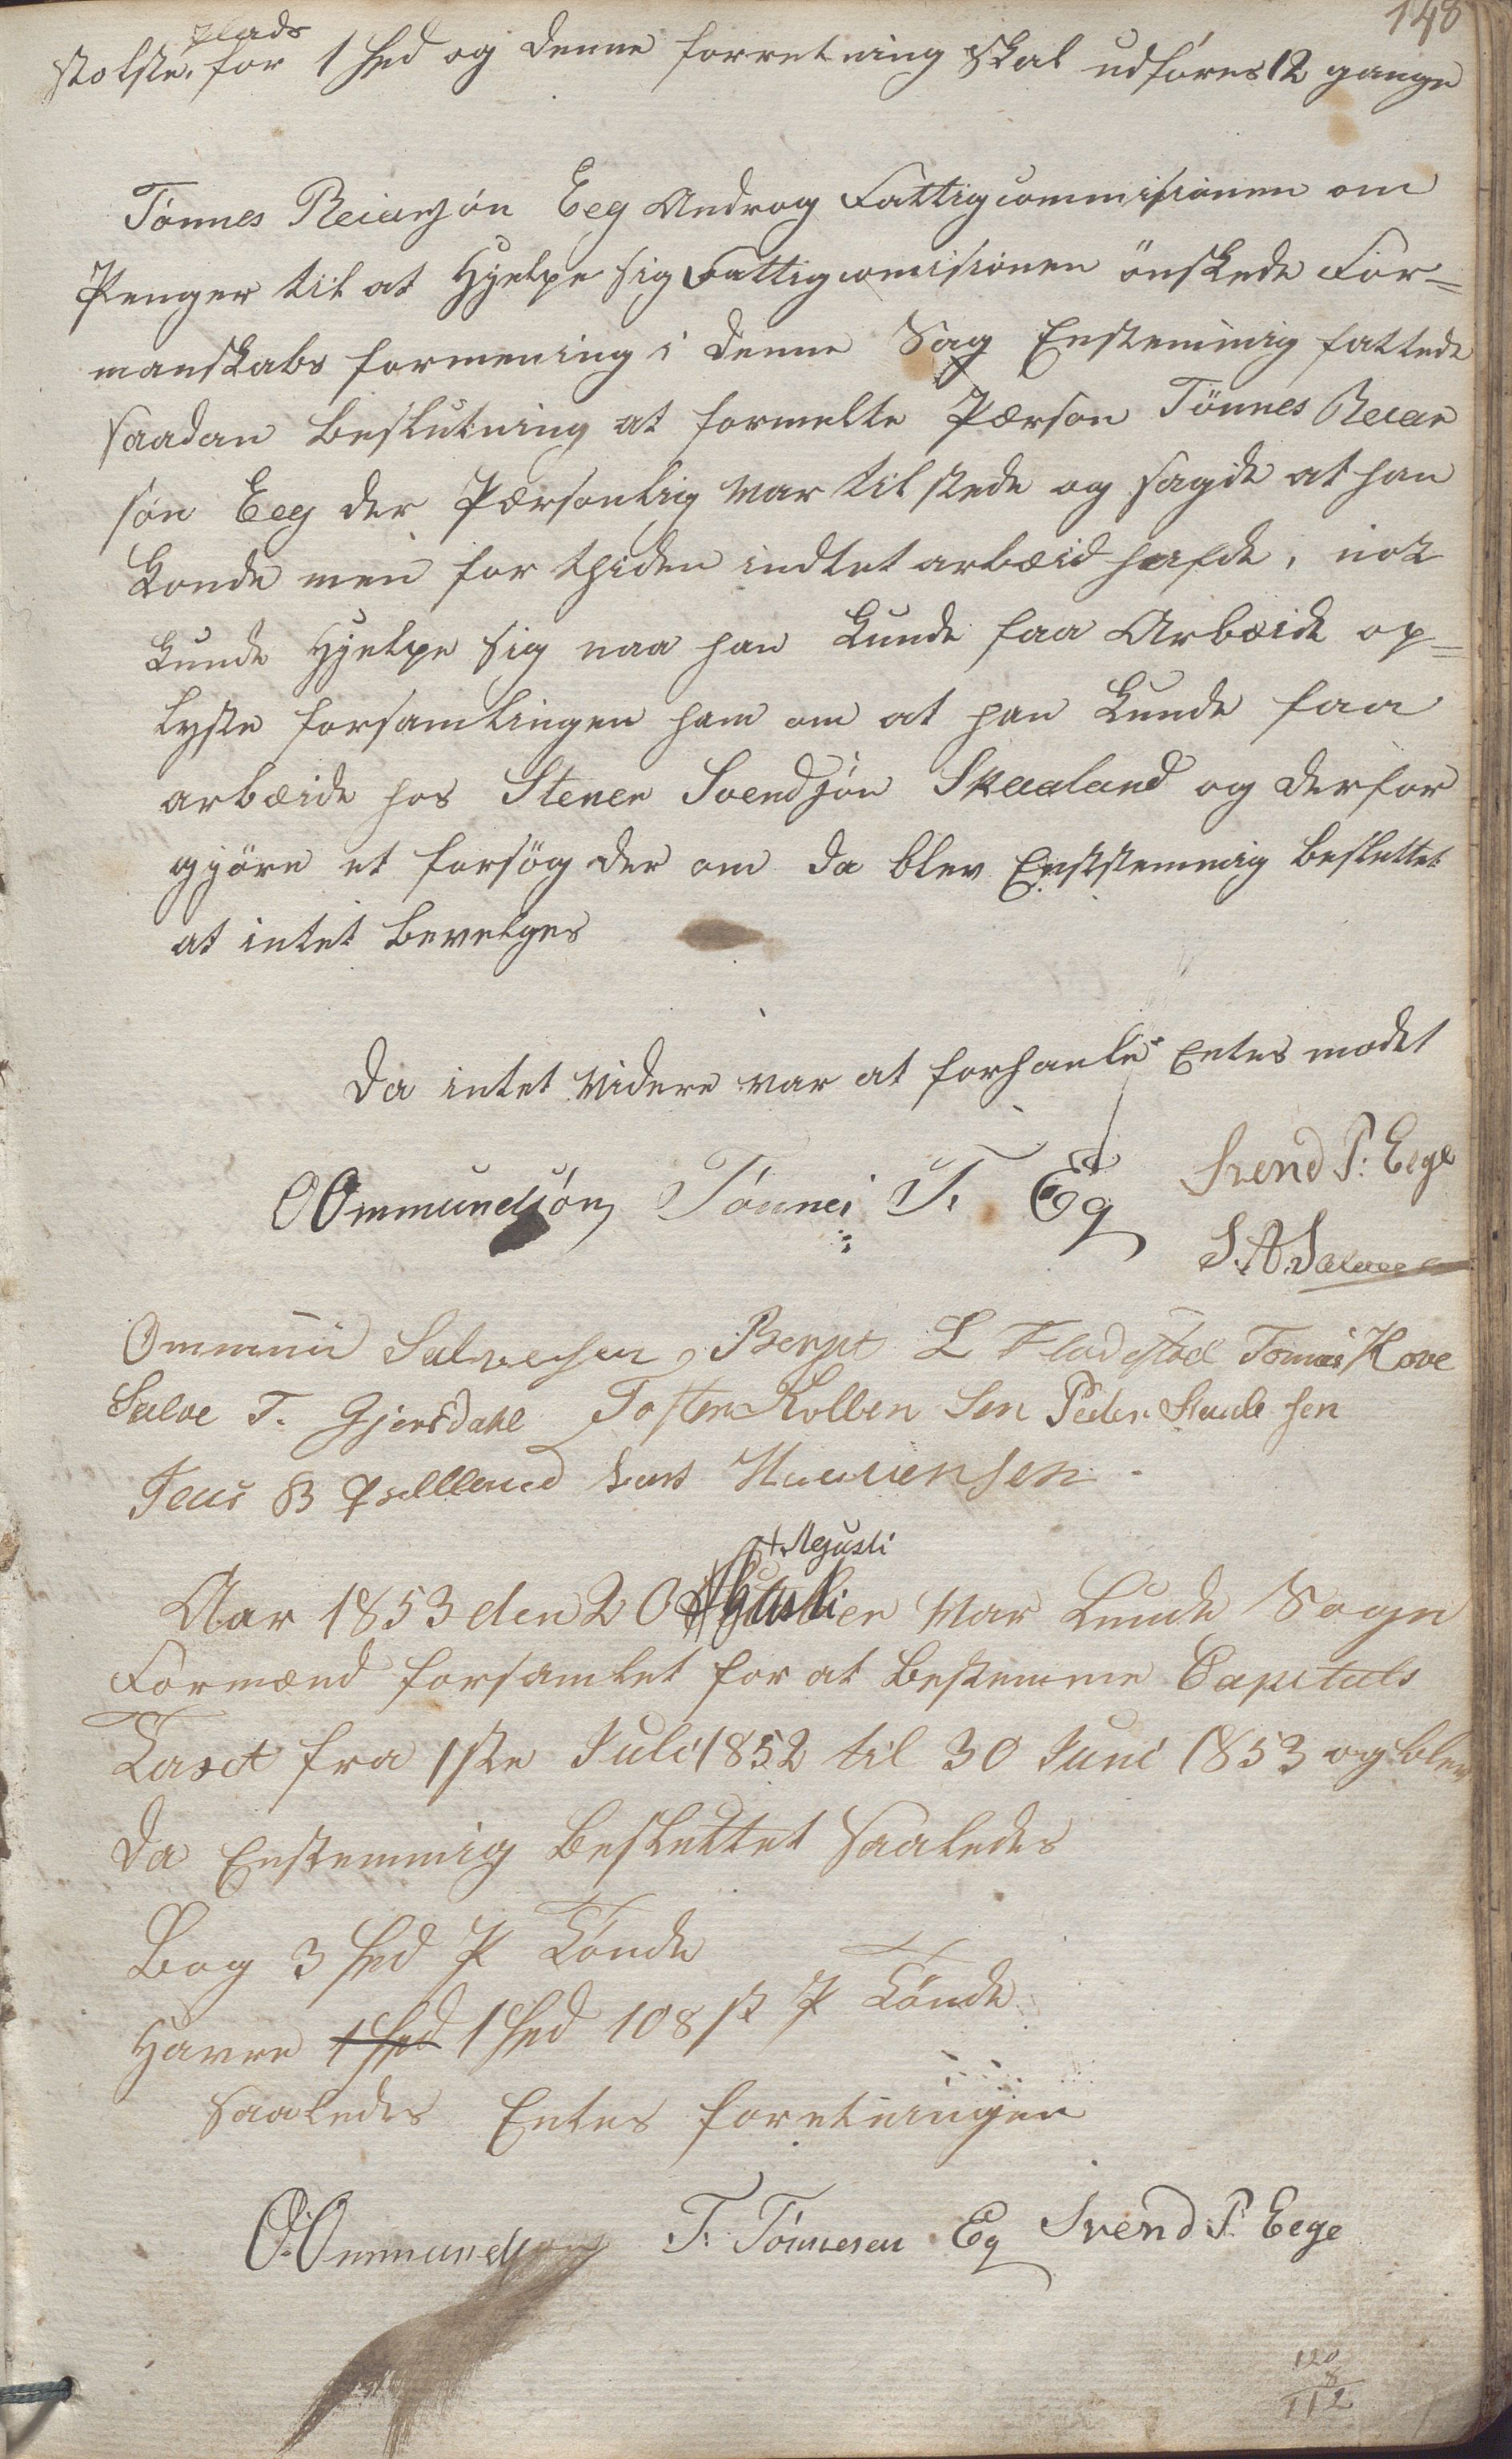 148
plads
stolste for 1 Spd og denne forretning skal udføres 12 gange
Tønnes Reiersøn Eeg Androg Fattigcommisionen om
Penger til at Hjelpe sig Fattigcomisionen önskede For=
manskabs formening i denne Sag Enstemmig fattede
saadan Beslutning at formelte Pærson Tönnes Reier
søn Eeg der Pærsonlig var tilstede og sagde at han
Konde men for thiden indtet arbæid hafde, nok
Kunde Hjelpe sig naa han Kunde faa Arbæide op=
lyste forsamlingen ham om at han Kunde faa
arbæide hos Stener Svendsøn Skaaland og derfor
gjöre et forsøg der om da blev Enststemmig besluttet
at intet bevelges
Da intet videre var at forhanle Entes modet
OOmmundsøn Tønnes T. Eg Svend P. Eege
S. A. Salvesen
Ommun Salvesen Berget L Fladstöd Tomas Hove
Salve T. Gjersdahl Tosten Kolben Sen Peder Staale sen
Teus B Lars Hanensen
+ Agusti
Aar 1853 den 20 Agusti var Lunde Sogn
Formænd forsamlet for at bestemme Capitals
Taxt fra 1ste Juli 1852 til 30 Juni 1853 og blev
da Enstemmig Besluttet Saaledes
Bog 3 Spd P Tønde
Havre 1 Spd 1 Spd 108 s P Tønde
saaledes Entes foretningen
O. Ommundsøn T. Tønnesen Eg Svend P. Eege
120
8
112